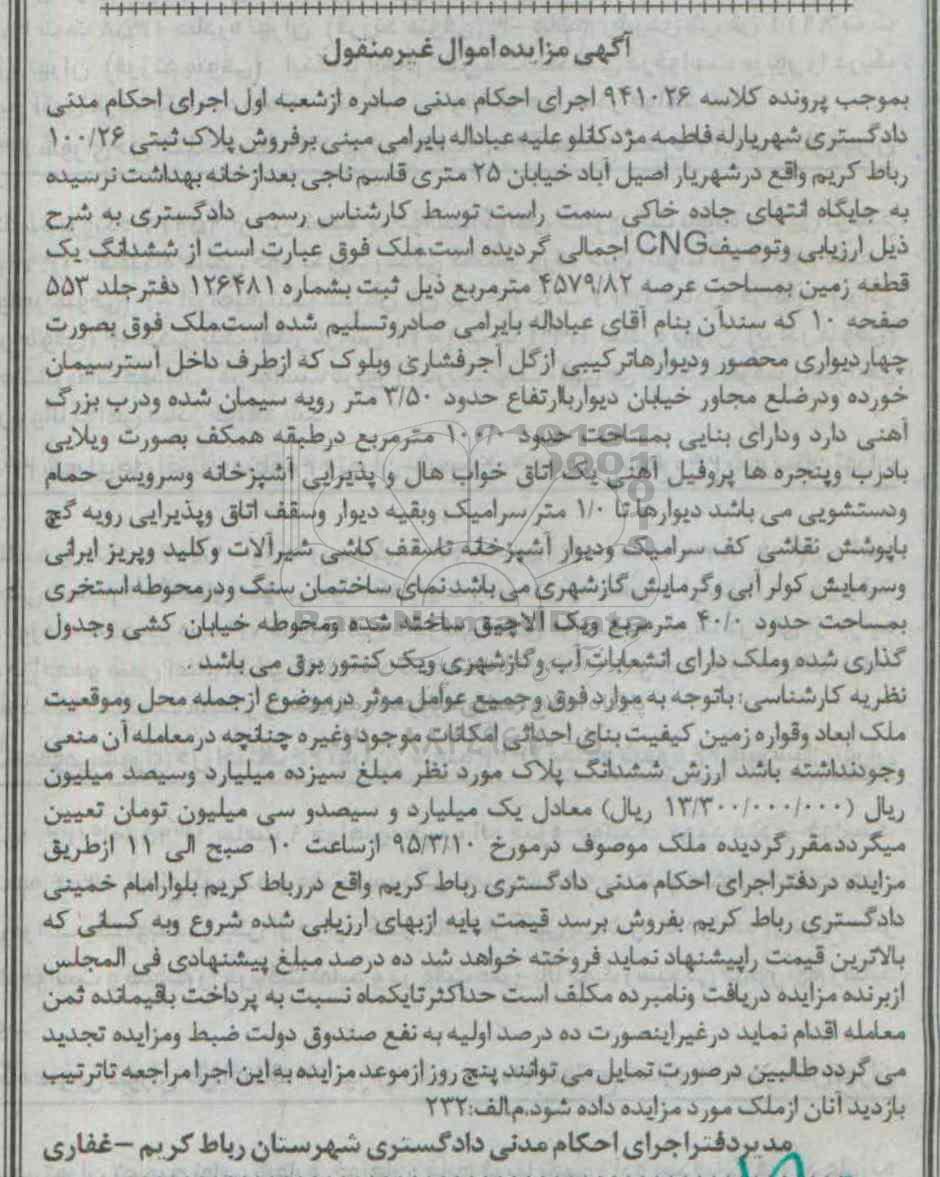 آگهی مزایده اموال غیرمنقول
بموجب پرونده کلاسه ۹۴۱۰۲۶ اجرای احکام مدنی صادره ازشعبه اول اجرای احکام مدنی
دادگستری شهریارله فاطمه مژدکانلو علیه عباداله بایرامی مبنی برفروش پلاک ثبتی ۱۰۰/۲۶
رباط کریم واقع درشهریار اصیل آباد خیابان ۲۵ متری قاسم ناجی بعدازخانه بهداشت نرسیده
به جایگاه انتهای جاده خاکی سمت راست توسط کارشناس رسمی دادگستری به شرح
ذیل ارزیابی وتوصیفCNG اجمالی گردیده است.ملک فوق عبارت است از ششدانگ یک
قطعه زمین بمساحت عرصه ۴۵۷۹/۸۲ مترمربع ذیل ثبت بشماره ۱۲۶۴۸۱ دفترجلد ۵۵۳
صفحه ۱۰ که سندآن بنام آقای عباداله بایرامی صادروتسلیم شده است.ملک فوق بصورت
چهاردیواری محصور ودیوارهاترکیبی ازگل آجرفشاری وبلوک که ازطرف داخل آسترسیمان
خورده ودرضلع مجاور خیابان دیوارباارتفاع حدود ۳/۵۰ متر رویه سیمان شده ودرب بزرگ
آهنی دارد ودارای بنایی بمساحت حدود ۱۰۰/۰ مترمربع درطبقه همکف بصورت ویلایی
بادرب وپنجره ها پروفیل آهنی یک اتاق خواب هال و پذیرایی آشپزخانه وسرویس حمام
ودستشویی می باشد دیوارها تا ۱/۰ متر سرامیک وبقیه دیوار وسقف اتاق وپذیرایی رویه گچ
باپوشش نقاشی کف سرامیک ودیوار آشپزخانه تاسقف کاشی شیرآلات وکلید وپریز ایرانی
وسرمایش کولر آبی وگرمایش گازشهری می باشد نمای ساختمان سنگ ودرمحوطه استخری
بمساحت حدود ۴۰/۰ مترمربع ویک آلاچیق ساخته شده ومحوطه خیابان کشی وجدول
گذاری شده وملک دارای انشعابات آب وگازشهری ویک کنتور برق می باشد .
نظریه کارشناسی: باتوجه به موارد فوق وجمیع عوامل موثر درموضوع ازجمله محل وموقعیت
ملک ابعاد وقواره زمین کیفیت بنای احداثی امکانات موجود وغیره چنانچه درمعامله آن منعی
وجودنداشته باشد ارزش ششدانگ پلاک مورد نظر مبلغ سیزده میلیارد وسیصد میلیون
ریال (۱۳/۳۰۰/۰۰۰/۰۰۰ ریال) معادل یک میلیارد و سیصدو سی میلیون تومان تعیین
میگردد.مقررگردیده ملک موصوف درمورخ ۹۵/۳/۱۰ ازساعت ۱۰ صبح الی ۱۱ ازطریق
مزایده دردفتراجرای احکام مدنی دادگستری رباط کریم واقع دررباط کریم بلوارامام خمینی
دادگستری رباط کریم بفروش برسد قیمت پایه ازبهای ارزیابی شده شروع وبه کسانی که
بالاترین قیمت راپیشنهاد نماید فروخته خواهد شد ده درصد مبلغ پیشنهادی فی المجلس
ازبرنده مزایده دریافت ونامبرده مکلف است حداکثرتایکماه نسبت به پرداخت باقیمانده ثمن
معامله اقدام نماید درغیراینصورت ده درصد اولیه به نفع صندوق دولت ضبط ومزایده تجدید
می گردد طالبین درصورت تمایل می توانند پنج روز ازموعد مزایده به این اجرا مراجعه تاترتیب
بازدید آنان ازملک مورد مزایده داده شود.م/الف:۲۳۲
مدیردفتراجرای احکام مدنی دادگستری شهرستان رباط کریم –غفاری